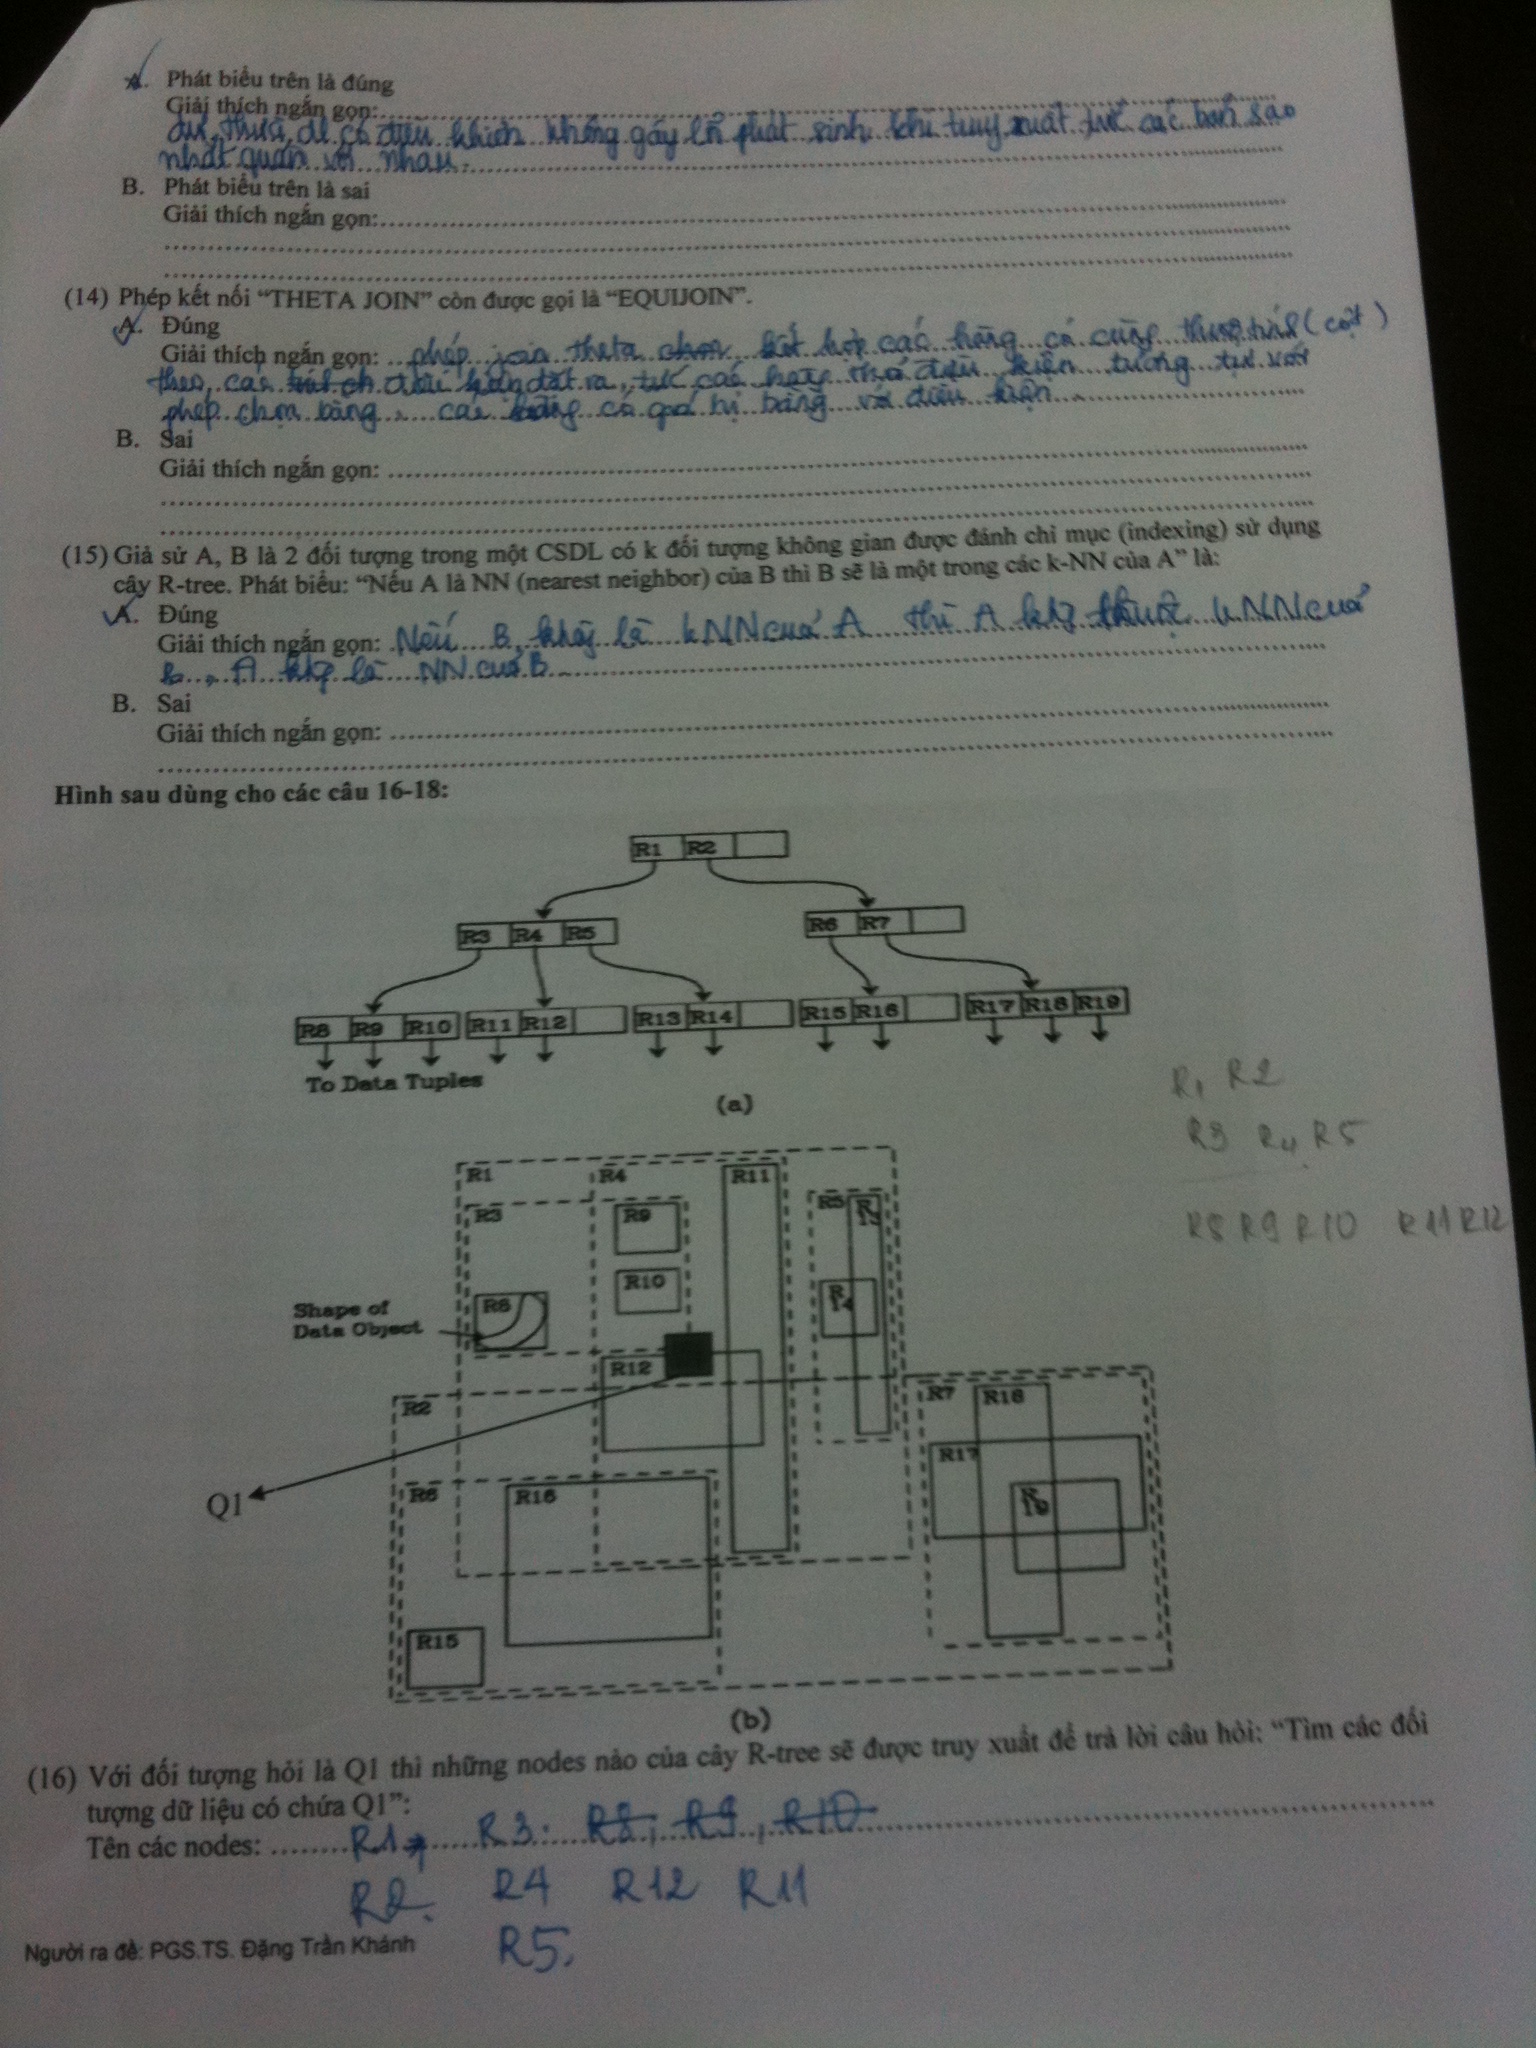 A. Phát biểu trên là đúng
Giải thích ngắn gọn:
dư thừa dl có điều khiển không gây lỗi phát sinh khi truy xuất tức các bản sao
nhất quán với nhau.
B. Phát biểu trên là sai
Giải thích ngắn gọn:
(14) Phép kết nối “THETA JOIN” còn được gọi là “EQUIJOIN”.
A. Đúng
Giải thích ngắn gọn: phép join theta kết hợp các hàng có cùng thuộc tính (cột)
theo các điều kiện đặt ra, tức các hàng thỏa điều kiện tương tự với
phép chọn bằng, các hàng có giá trị bằng với điều kiện.
B. Sai
Giải thích ngắn gọn:
(15) Giả sử A, B là 2 đối tượng trong một CSDL có k đối tượng không gian được đánh chỉ mục (indexing) sử dụng
cây R-tree. Phát biểu: “Nếu A là NN (nearest neighbor) của B thì B sẽ là một trong các k-NN của A” là:
A. Đúng
Giải thích ngắn gọn: Nếu B không là kNN của A thì A khg thuộc kNN của
B, A khg là NN của B
B. Sai
Giải thích ngắn gọn:
Hình sau dùng cho các câu 16-18:
R1 R2
R3 R4 R5 R6 R7
R8 R9 R10 R11 R12 R13 R14 R15 R16 R17 R18 R19
To Data Tuples
(a)
R1 R2
R3 R4 R5
R8 R9 R10 R11 R12
R1 R4 R11
R3 R9 R5 R13
R10
Shape of
Data Object
R8 R14
R12
R2 R7 R18
R17
Q1 R6 R16 R19
R15
(b)
(16) Với đối tượng hỏi là Q1 thì những nodes nào của cây R-tree sẽ được truy xuất để trả lời câu hỏi: “Tìm các đối
tượng dữ liệu có chứa Q1”:
Tên các nodes: R1 R3 R8, R9, R10
R2. R4 R12 R11
R5.
Người ra đề: PGS.TS. Đặng Trần Khánh